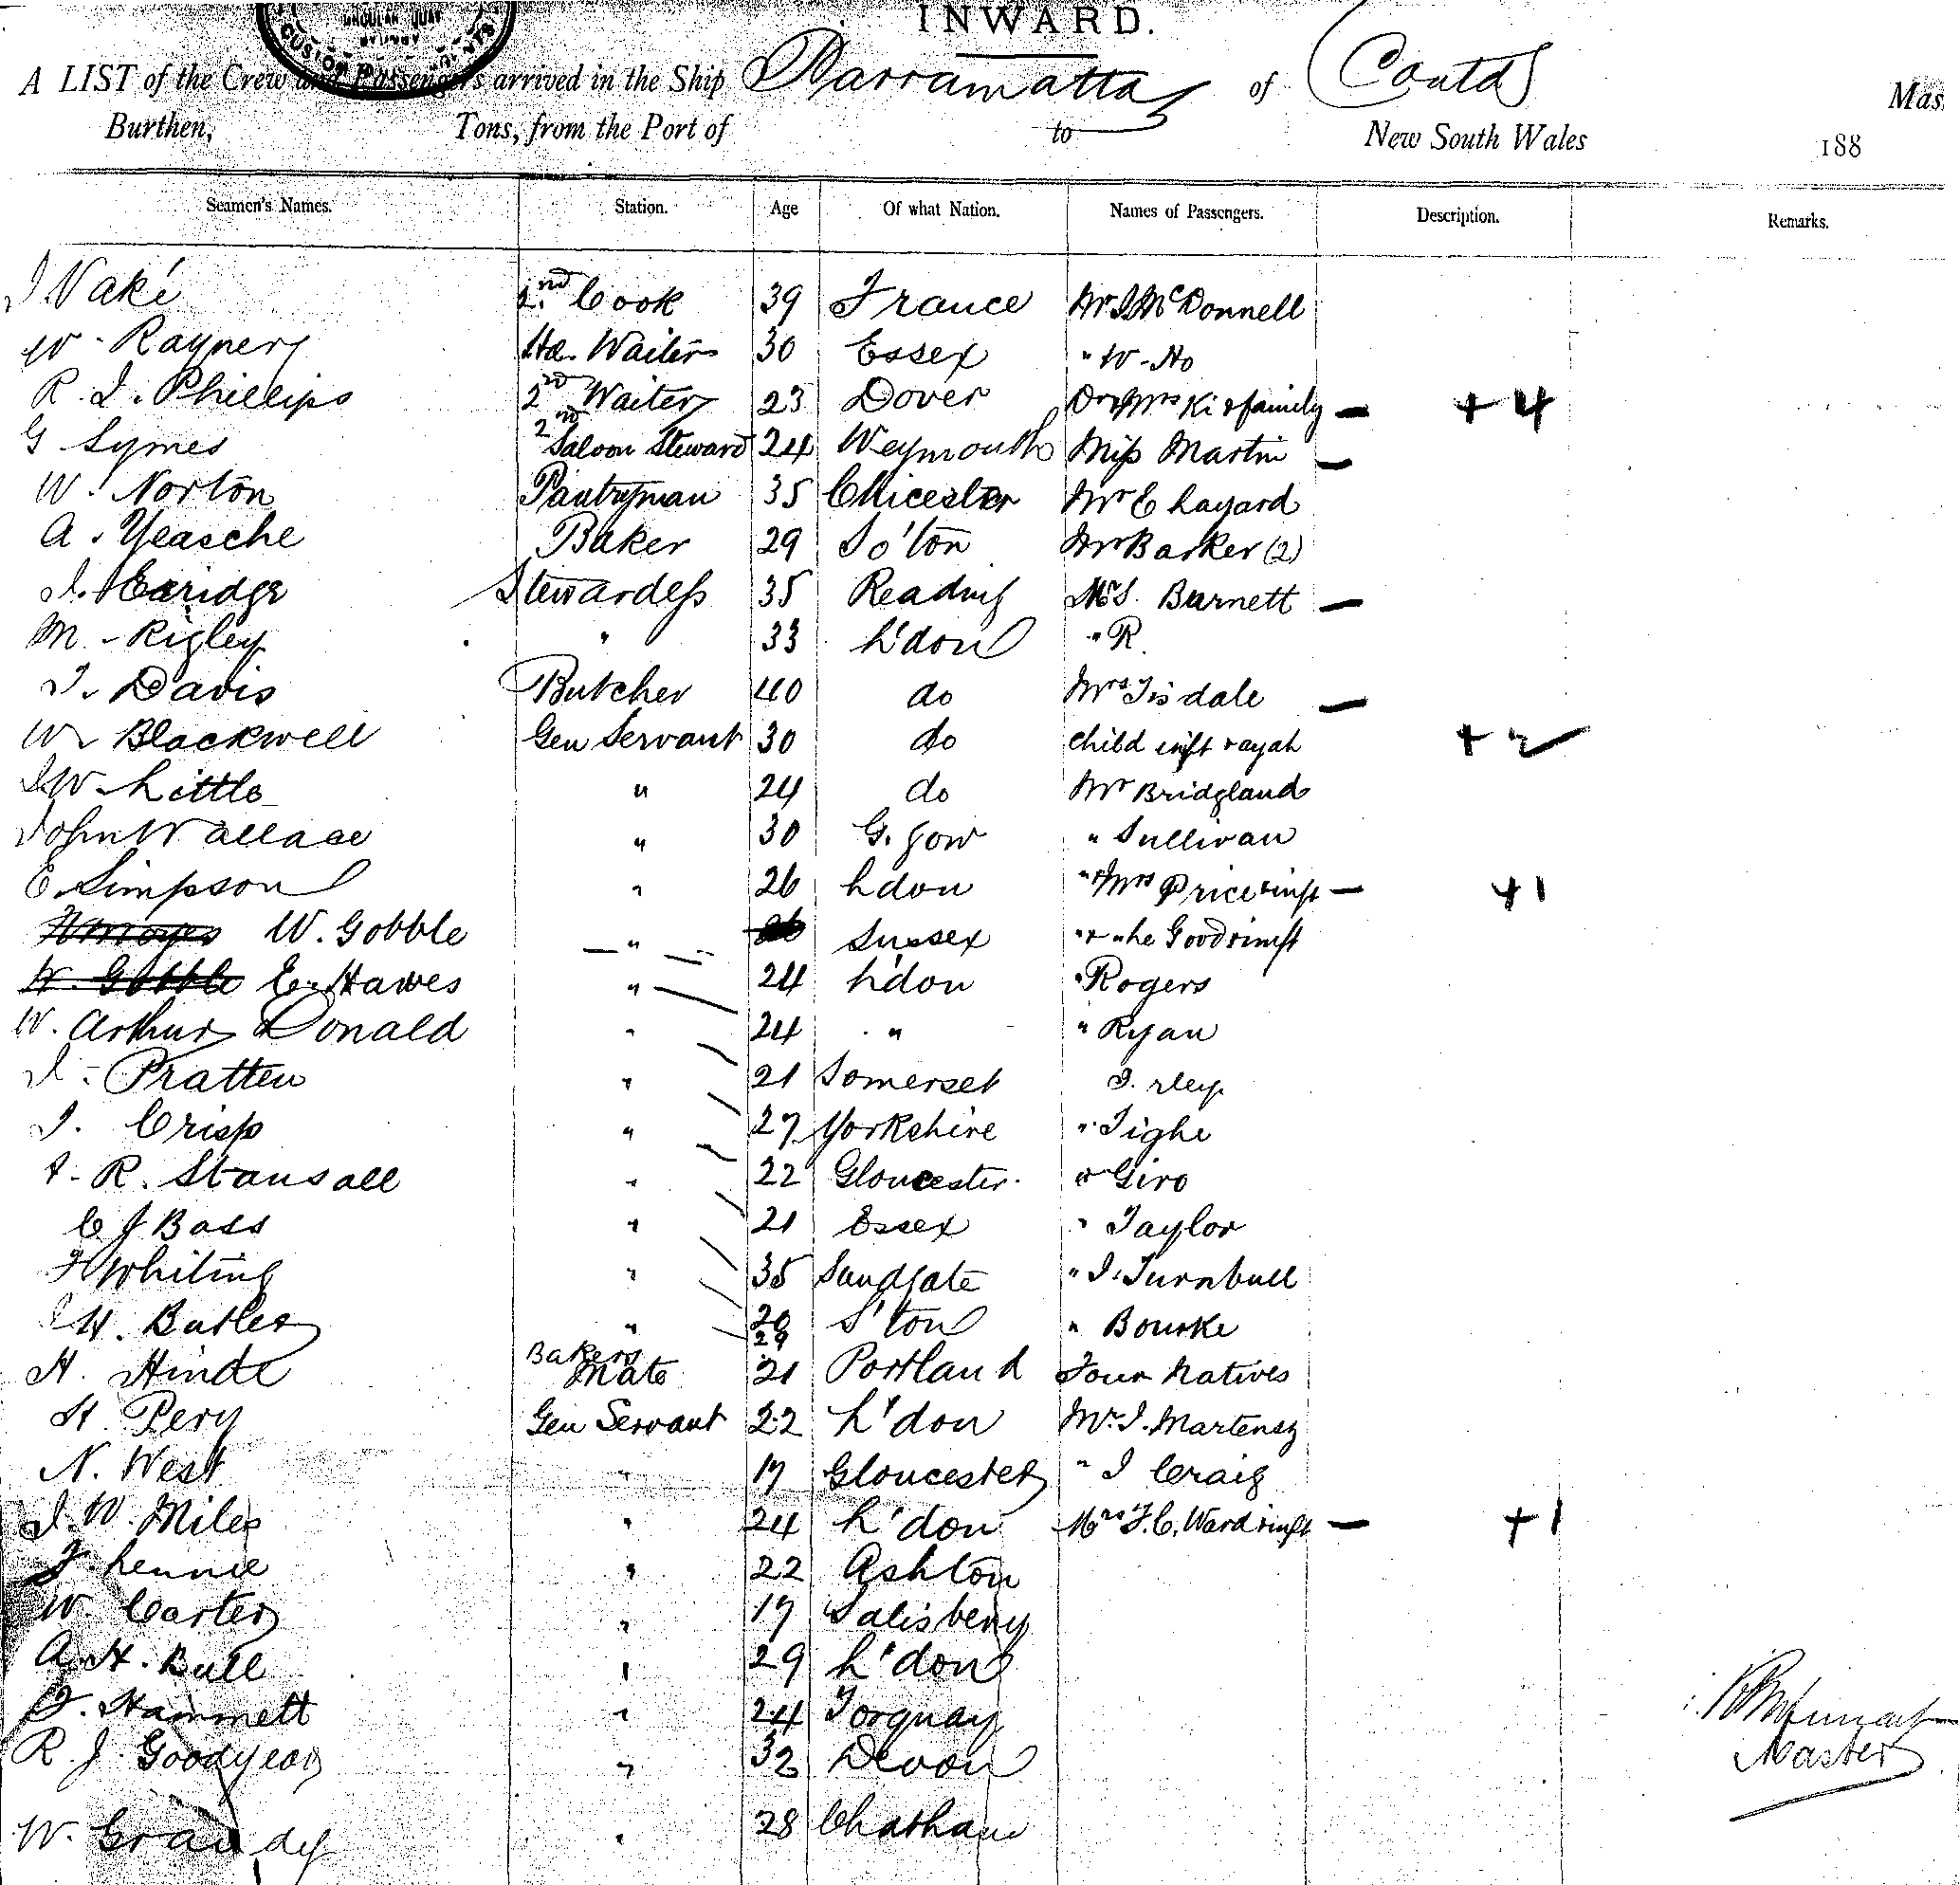 INWARD.
A LIST of the Crew and Passengers arrived in the Ship Parramatta of Contd Mas
Burthen, Tons, from the Port of to New South Wales 188
Seamen's Names. Station. Age Of what Nation. Names of Passengers. Description. Remarks.
J Vaké 2nd Cook 39 France Mr J McDonnell
W. Rayner Hd. Waiter 30 Essex " W. Ho
R. J. Phillips 2nd Waiter 23 Dover Dr & Mrs Ki & family — + 4
G Symes 2nd Saloon Steward 24 Weymouth Miss Martin —
W. Norton Pantryman 35 Chicester Mr E Layard
A. Yeasche Baker 29 So'ton Mr Barker (2)
Stewardess 35 Reading Mrs. Burnett —
M. Rigley " 33 L'don " R.
J. Davis Butcher 40 do Mrs Tisdale —
W Blackwell Gen Servant 30 do child inft & ayah + 2
J W. Little " 24 do Mr Bridgland
John Wallace " 30 G. gow " Sullivan
E. Simpson " 26 Ldon " & Mrs Price & inft — + 1
W. Gobble " Sussex " & " he Good & inft
W. Gobble E. Hawes " 24 L'don " Rogers
W. Arthur Donald " 24 " " Ryan
J. Pratten " 21 Somerset
J. Crisp " 27 Yorkshire " Tighe
R. Stansall " 22 Gloucester " Giro
C J Bass " 21 Essex " Taylor
F Whiting " 35 Sandgate " J. Turnbull
H. Butler " 29 S'ton " Bourke
H. Hinde Bakers Mate 21 Portland Four Natives
H. Pery Gen Servant 22 L'don Mr. J. Martens
N. West " 17 Gloucester " J Craig
J. W. Miles " 24 L'don Mrs F. C. Ward & inft — + 1
J. Lennie " 22 Ashton
W. Carter " 17 Salisbery
A. H. Bull " 29 L'don
J. Hammett " 24 Torquay
R. J. Goodyear " 32 Devon
Master
W. Grandy " 28 Chatham